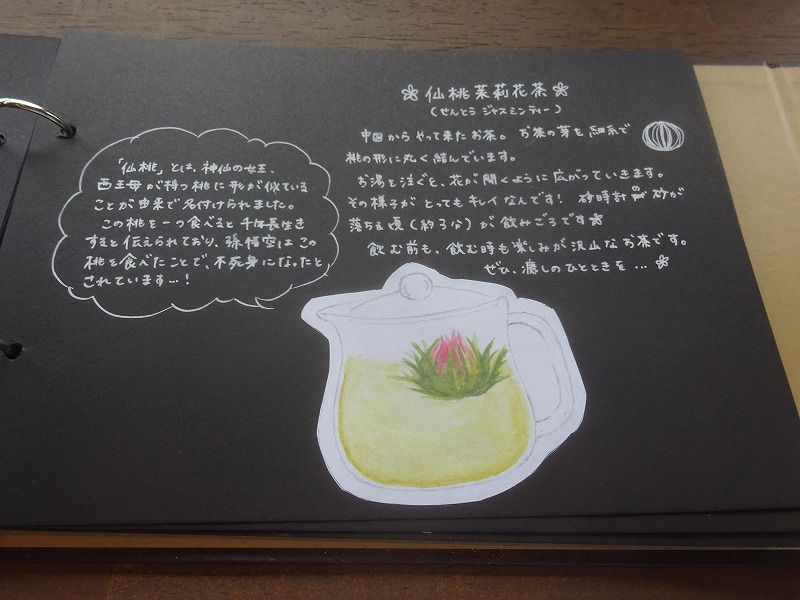 ❀仙桃茉莉花茶❀
(せんとう ジャスミンティー)
中国から やって来たお茶。 お茶の芽を 細糸で
桃の形に丸く 結んでいます。
お湯を注ぐと、花が 開くように 広がっていきます。
その様子が とっても キレイ なんです! 砂時計の 砂が
落ちる頃(約3分)が 飲みごろです
飲む前も、飲む時も楽しみが 沢山な お茶です。
ぜひ、癒しのひとときを…
「仙桃」とは、神仙の女王、
西王母が持つ桃に形が似ている
ことが由来で名付けられました。
この桃を一つ食べると 千年長生き
すると伝えられており、孫悟空は この
桃を食べたことで、不死身になったと
されています…!